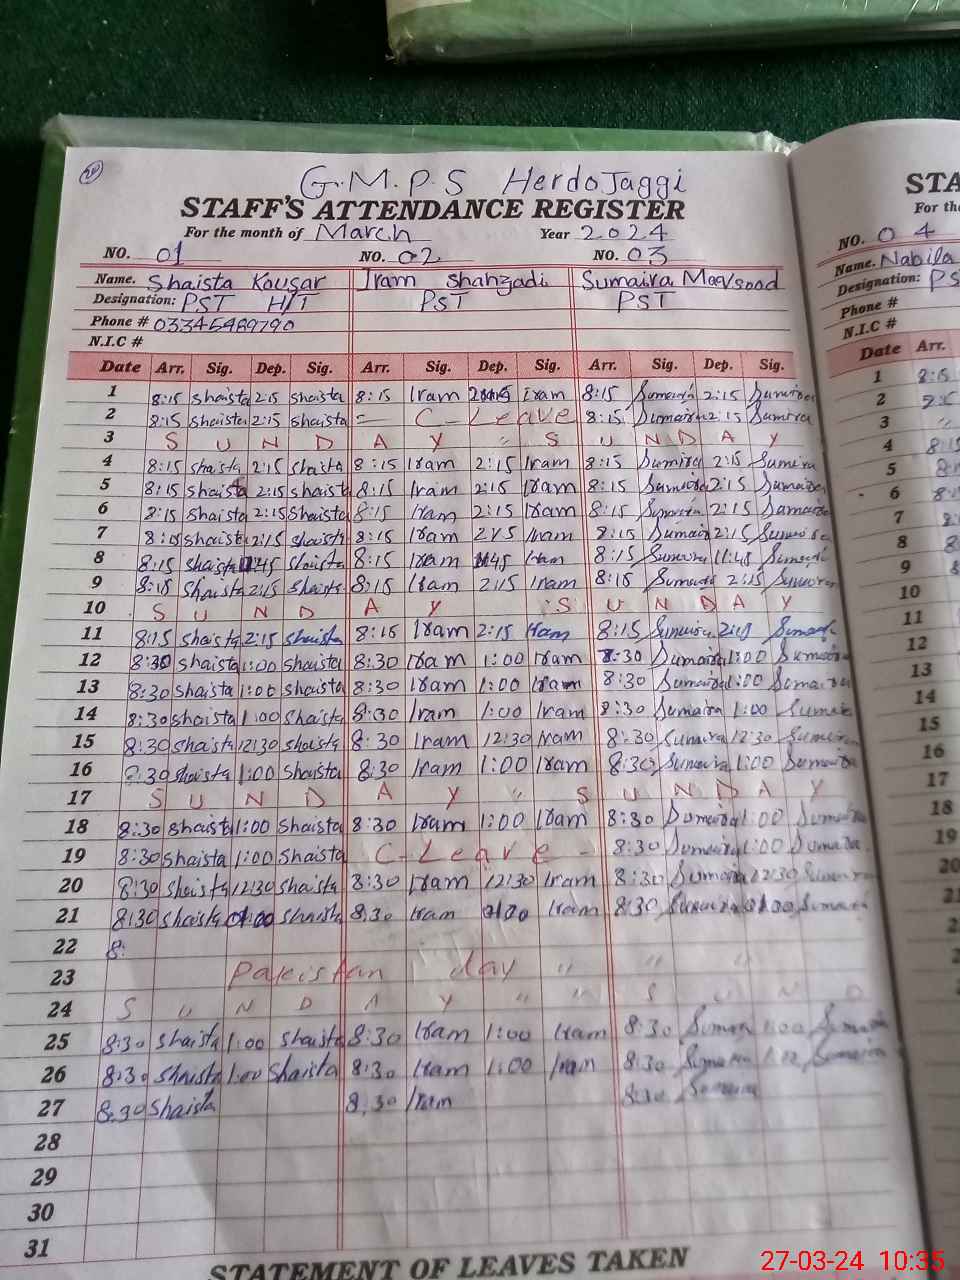 G.M.P.S Herdo Jaggi
STAFF'S ATTENDANCE REGISTER
For the month of March Year 2024
NO. 01 NO. 02 NO. 03
Name. Shaista Kousar Iram Shahzadi Sumaira Maqsood
Designation: PST H/T PST PST
Phone #
N.I.C #
Date Arr. Sig. Dep. Sig. Arr. Sig. Dep. Sig. Arr. Sig. Dep. Sig.
1 8:15 shaista 2:15 shaista 8:15 Iram Iram 8:15 Sumaira 2:15 Sumaira
2 8:15 shaista 2:15 shaista = C_Leave 8:15 Sumaira 2:15 Sumaira
3 S U N D A Y " S U N D A Y
4 8:15 shaista 2:15 shaista 8:15 Iram 2:15 Iram 8:15 Sumaira 2:15 Sumaira
5 8:15 shaista 2:15 shaista 8:15 Iram 2:15 Iram 8:15 Sumaira 2:15 Sumaira
6 8:15 shaista 2:15 shaista 8:15 Iram 2:15 Iram 8:15 Sumaira 2:15 Sumaira
7 shaista 2:15 shaista 8:15 Iram 2:15 Iram 8:15 Sumaira 2:15 Sumaira
8 8:15 shaista shaista 8:15 Iram Iram 8:15 Sumaira 11:45 Sumaira
9 8:15 shaista 2:15 shaista 8:15 Iram 2:15 Iram 8:15 Sumaira 2:15 Sumaira
10 S U N D A Y S U N D A Y
11 8:15 shaista 2:15 shaista 8:15 Iram 2:15 Iram 8:15 Sumaira Sumaira
12 8:30 shaista 1:00 shaista 8:30 Iram 1:00 Iram 8:30 Sumaira 1:00 Sumaira
13 8:30 shaista 1:00 shaista 8:30 Iram 1:00 Iram 8:30 Sumaira 1:00 Sumaira
14 8:30 shaista 1:00 shaista 8:30 Iram 1:00 Iram 8:30 Sumaira 1:00 Sumaira
15 8:30 shaista 12:30 shaista 8:30 Iram 12:30 Iram 8:30 Sumaira 12:30 Sumaira
16 8:30 shaista 1:00 shaista 8:30 Iram 1:00 Iram 8:30 Sumaira 1:00 Sumaira
17 S U N D A Y " S U N D A Y
18 8:30 shaista 1:00 shaista 8:30 Iram 1:00 Iram 8:30 Sumaira 1:00 Sumaira
19 8:30 shaista 1:00 shaista C-Leave - 8:30 Sumaira 1:00 Sumaira
20 8:30 shaista 12:30 shaista 8:30 Iram 12:30 Iram 8:30 Sumaira 12:30 Sumaira
21 8:30 shaista shaista 8:30 Iram Iram 8:30 Sumaira Sumaira
22 8:
23 Pakistan day " " "
24 S U N D A Y " " S U N D
25 8:30 shaista 1:00 shaista 8:30 Iram 1:00 Iram 8:30 Sumaira 1:00 Sumaira
26 8:30 shaista 1:00 shaista 8:30 Iram 1:00 Iram 8:30 Sumaira Sumaira
27 8:30 shaista 8:30 Iram 8:30 Sumaira
28
29
30
31
STATEMENT OF LEAVES TAKEN
STA
For the
NO. 04
Name. Nabila
Designation: PS
Phone #
N.I.C #
Date Arr.
1 8:15
2
3 "
4
5
6
7
8
9
10
11
12
13
14
15
16
17
18
19
20
27-03-24 10:35